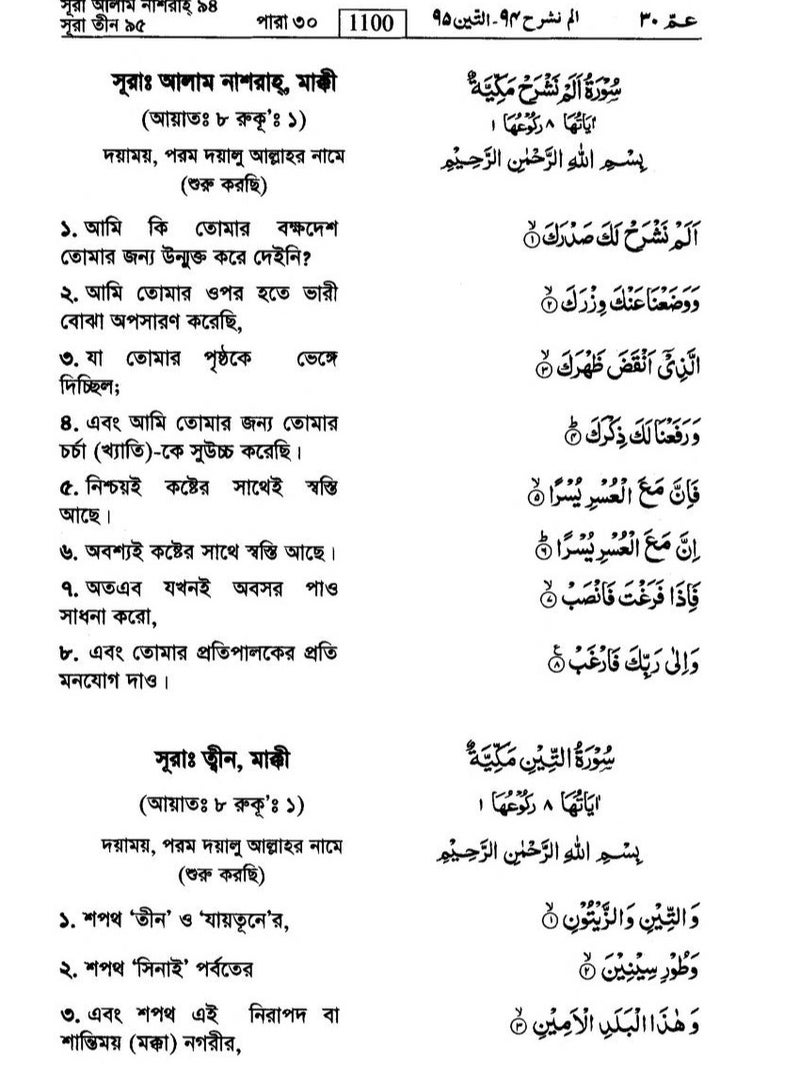 সূরা আলাম নাশরাহ্ ৯৪
সূরা তীন ৯৫
পারা ৩০
1100
الم نشرح ٩٤-التين ٩٥
عـمّ ٣٠
সূরাঃ আলাম নাশরাহ্, মাক্কী
(আয়াতঃ ৮ রুকূ'ঃ ১)
দয়াময়, পরম দয়ালু আল্লাহর নামে
(শুরু করছি)
১. আমি কি তোমার বক্ষদেশ
তোমার জন্য উন্মুক্ত করে দেইনি?
২. আমি তোমার ওপর হতে ভারী
বোঝা অপসারণ করেছি,
৩. যা তোমার পৃষ্ঠকে ভেঙ্গে
দিচ্ছিল;
৪. এবং আমি তোমার জন্য তোমার
চর্চা (খ্যাতি)-কে সুউচ্চ করেছি।
৫. নিশ্চয়ই কষ্টের সাথেই স্বস্তি
আছে।
৬. অবশ্যই কষ্টের সাথে স্বস্তি আছে।
৭. অতএব যখনই অবসর পাও
সাধনা করো,
৮. এবং তোমার প্রতিপালকের প্রতি
মনযোগ দাও।
سُوْرَةُ اَلَمْ نَشْرَحْ مَكِّيَّةٌ
اٰيَاتُهَا ٨ رُكُوْعُهَا ١
بِسْــمِ اللهِ الرَّحْمٰنِ الرَّحِيْمِ
اَلَمْ نَشْرَحْ لَكَ صَدْرَكَ ۙ﴿۱﴾
وَوَضَعْنَا عَنْكَ وِزْرَكَ ۙ﴿۲﴾
الَّذِيْٓ اَنْقَضَ ظَهْرَكَ ۙ﴿۳﴾
وَرَفَعْنَا لَكَ ذِكْرَكَ ؕ﴿۴﴾
فَاِنَّ مَعَ الْعُسْرِ يُسْرًا ۙ﴿۵﴾
اِنَّ مَعَ الْعُسْرِ يُسْرًا ؕ﴿۶﴾
فَاِذَا فَرَغْتَ فَانْصَبْ ۙ﴿۷﴾
وَاِلٰى رَبِّكَ فَارْغَبْ ﴿۸﴾
সূরাঃ ত্বীন, মাক্কী
(আয়াতঃ ৮ রুকূ'ঃ ১)
দয়াময়, পরম দয়ালু আল্লাহর নামে
(শুরু করছি)
১. শপথ ‘তীন’ ও ‘যায়তূনে’র,
২. শপথ ‘সিনাই’ পর্বতের
৩. এবং শপথ এই নিরাপদ বা
শান্তিময় (মক্কা) নগরীর,
سُوْرَةُ التِّيْنِ مَكِّيَّةٌ
اٰيَاتُهَا ٨ رُكُوْعُهَا ١
بِسْــمِ اللهِ الرَّحْمٰنِ الرَّحِيْمِ
وَالتِّيْنِ وَالزَّيْتُوْنِ ۙ﴿۱﴾
وَطُوْرِ سِيْنِيْنَ ۙ﴿۲﴾
وَهٰذَا الْبَلَدِ الْاَمِيْنِ ۙ﴿۳﴾